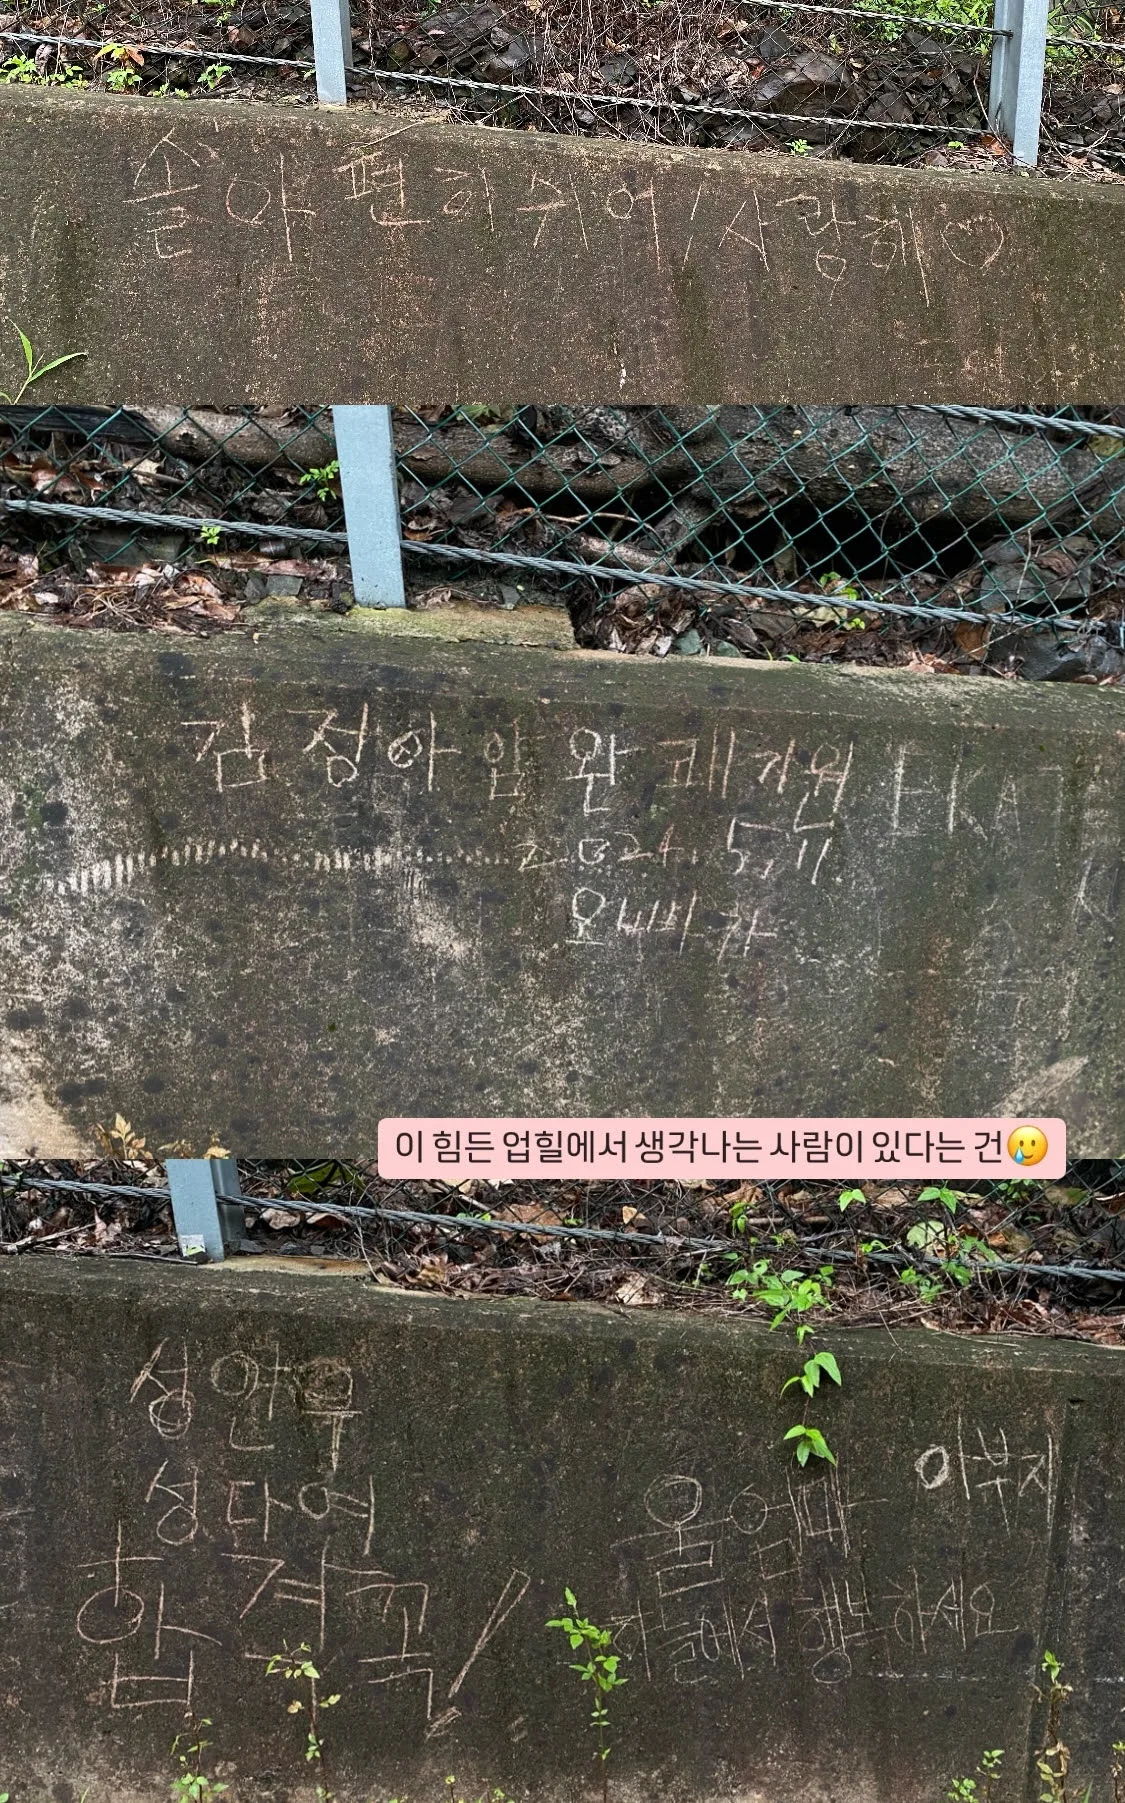 솔아 편히 쉬어! 사랑해♡
김정아 암 완쾌기원
2024. 5, 11.
오빠가
이 힘든 업힐에서 생각나는 사람이 있다는 건🥲
성안우
성다여
합격꼭!
울엄마 아부지
하늘에서 행복하세요